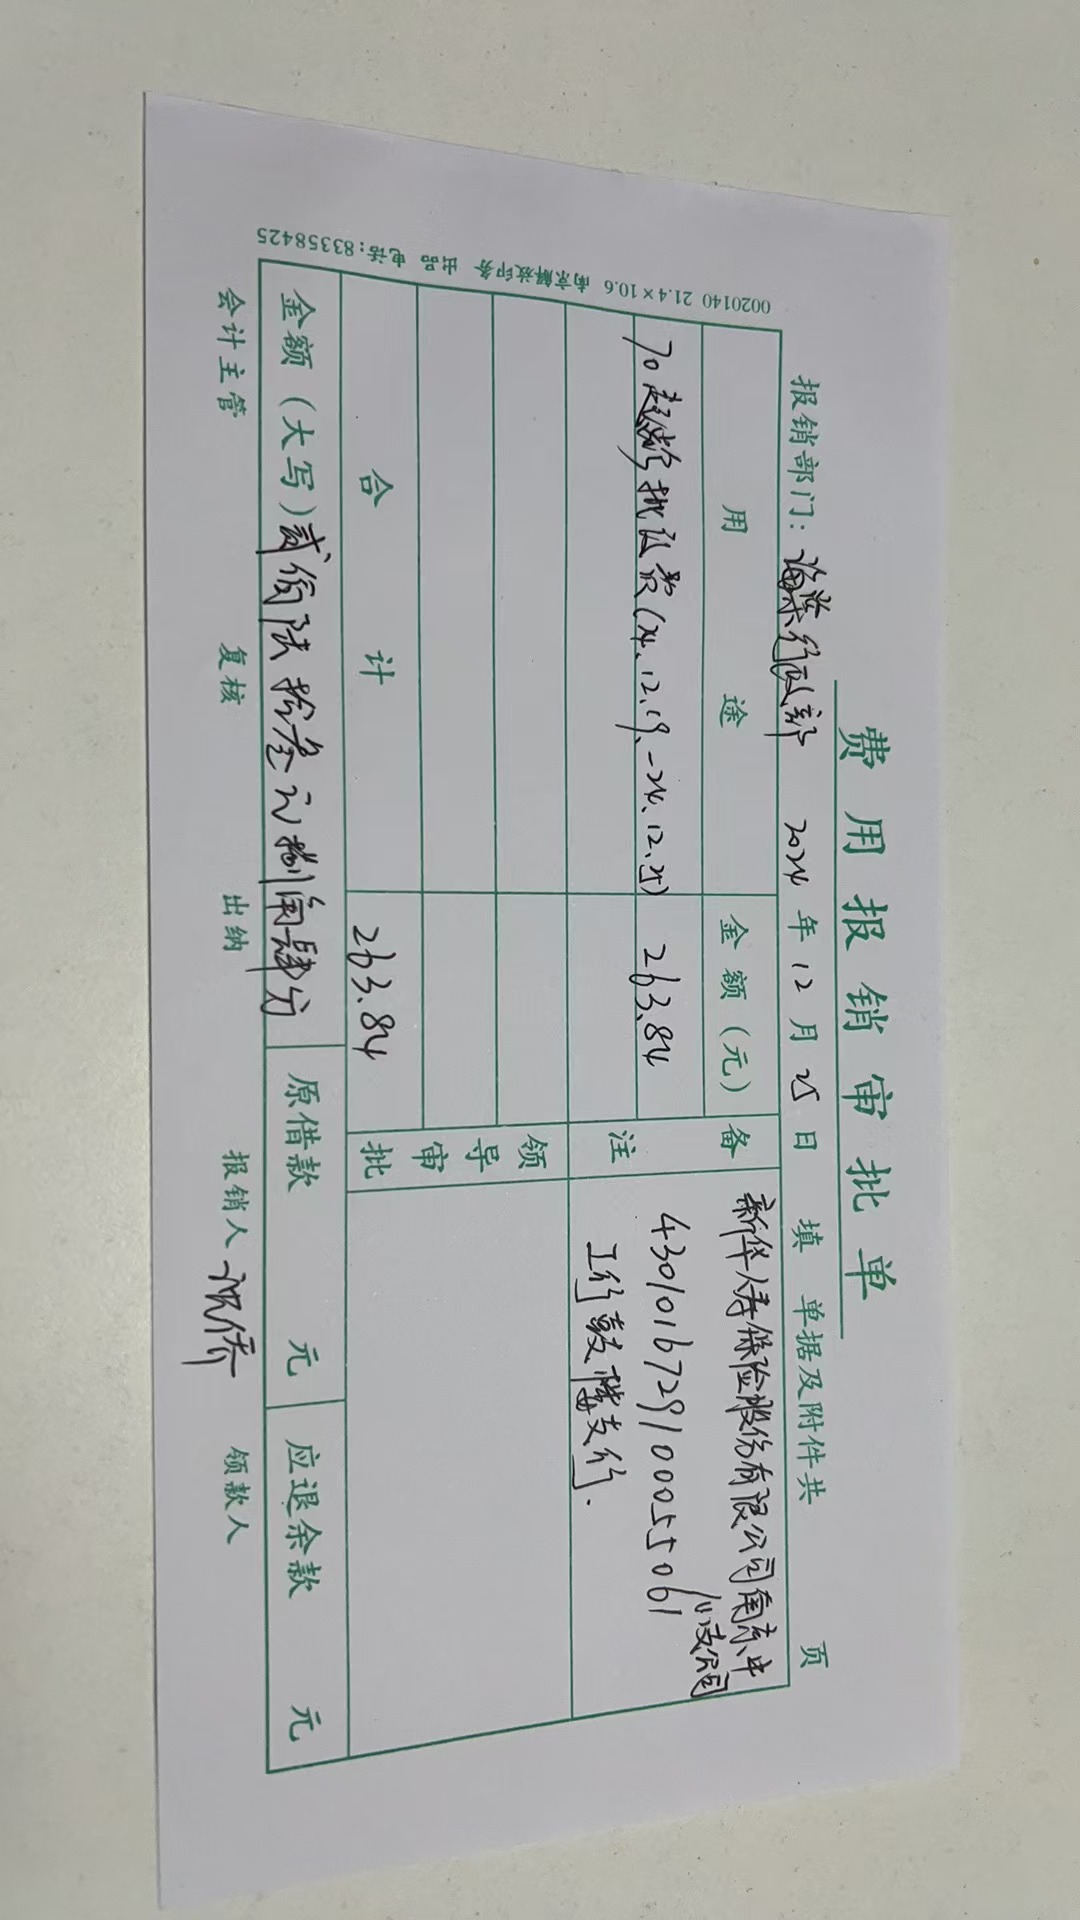 费用报销审批单
报销部门：海棠行政部 2024年12月25日 填 单据及附件共 页
用途 金额（元） 备注
新华人寿保险股份有限公司南京中
支公司
4301016729100055061
工行鼓楼支行.
70 (24.12.19.-24.12.25) 263.84
领导审批
合计 263.84
金额（大写）贰佰陆拾叁元捌角肆分 原借款 元 应退余款 元
会计主管 复核 出纳 报销人 领款人
0020140 21.4×10.6 南京解放印务 出品 电话:83358425